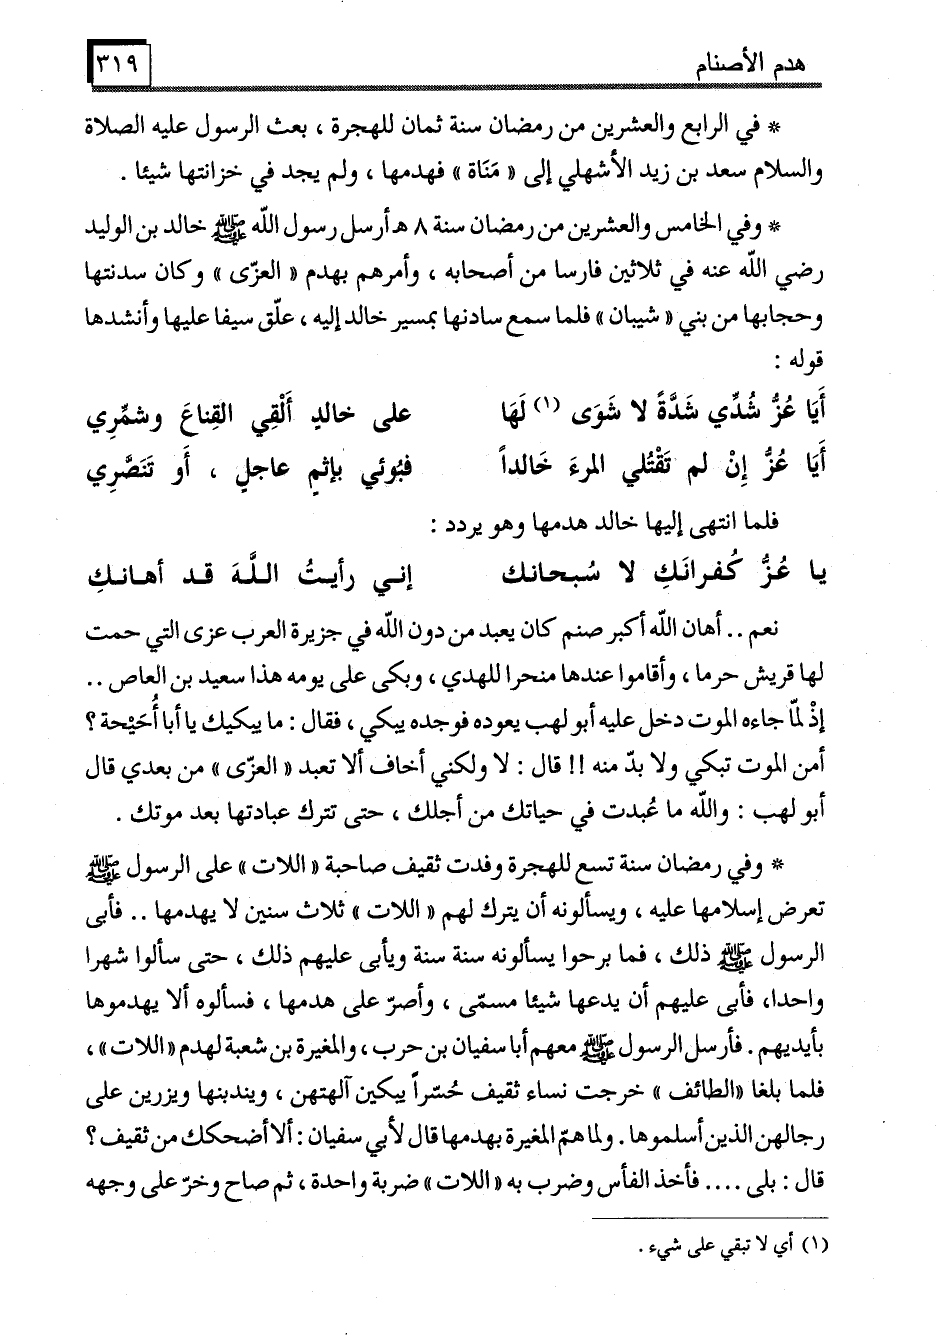 هدم الأصنام
٣١٩
* في الرابع والعشرين من رمضان سنة ثمان للهجرة ، بعث الرسول عليه الصلاة
والسلام سعد بن زيد الأشهلي إلى « مَنَاة » فهدمها ، ولم يجد في خزانتها شيئا .
* وفي الخامس والعشرين من رمضان سنة ٨ هـ أرسل رسول اللّه ﷺ خالد بن الوليد
رضي اللّه عنه في ثلاثين فارسا من أصحابه ، وأمرهم بهدم « العزّى » وكان سدنتها
وحجابها من بني « شيبان » فلما سمع سادنها بمسير خالد إليه ، علّق سيفا عليها وأنشدها
قوله :
أَيَا عُزُّ شُدِّي شَدَّةً لا شَوَى (١) لَهَا على خالدٍ أَلْقِي القِناعَ وشمِّري
أَيَا عُزُّ إِنْ لم تَقْتُلي المرءَ خَالداً فبُوئي بإثمٍ عاجلٍ ، أَو تَنَصَّرِي
فلما انتهى إليها خالد هدمها وهو يردد :
يا عُزُّ كُفرانَكِ لا سُبحانك إني رأيتُ اللَّهَ قد أهانكِ
نعم .. أهان اللّه أكبر صنم كان يعبد من دون اللّه في جزيرة العرب عزى التي حمت
لها قريش حرما ، وأقاموا عندها منحرا للهدي ، وبكى على يومه هذا سعيد بن العاص ..
إذْ لمّا جاءه الموت دخل عليه أبو لهب يعوده فوجده يبكي ، فقال : ما يبكيك يا أبا أُحَيْحة ؟
أمن الموت تبكي ولا بدّ منه !! قال : لا ولكني أخاف ألا تعبد « العزّى » من بعدي قال
أبو لهب : واللّه ما عُبدت في حياتك من أجلك ، حتى تترك عبادتها بعد موتك .
* وفي رمضان سنة تسع للهجرة وفدت ثقيف صاحبة « اللات » على الرسول ﷺ
تعرض إسلامها عليه ، ويسألونه أن يترك لهم « اللات » ثلاث سنين لا يهدمها .. فأبى
الرسول ﷺ ذلك ، فما برحوا يسألونه سنة سنة ويأبى عليهم ذلك ، حتى سألوا شهرا
واحدا، فأبى عليهم أن يدعها شيئا مسمّى ، وأصرّ على هدمها ، فسألوه ألا يهدموها
بأيديهم . فأرسل الرسول ﷺ معهم أبا سفيان بن حرب ، والمغيرة بن شعبة لهدم «اللات» ،
فلما بلغا «الطائف » خرجت نساء ثقيف حُسّراً يبكين آلهتهن ، ويندبنها ويزرين على
رجالهن الذين أسلموها . ولما همّ المغيرة بهدمها قال لأبي سفيان : ألا أضحكك من ثقيف ؟
قال : بلى .... فأخذ الفأس وضرب به «اللات» ضربة واحدة ، ثم صاح وخرّ على وجهه
(١) أي لا تبقي على شيء .